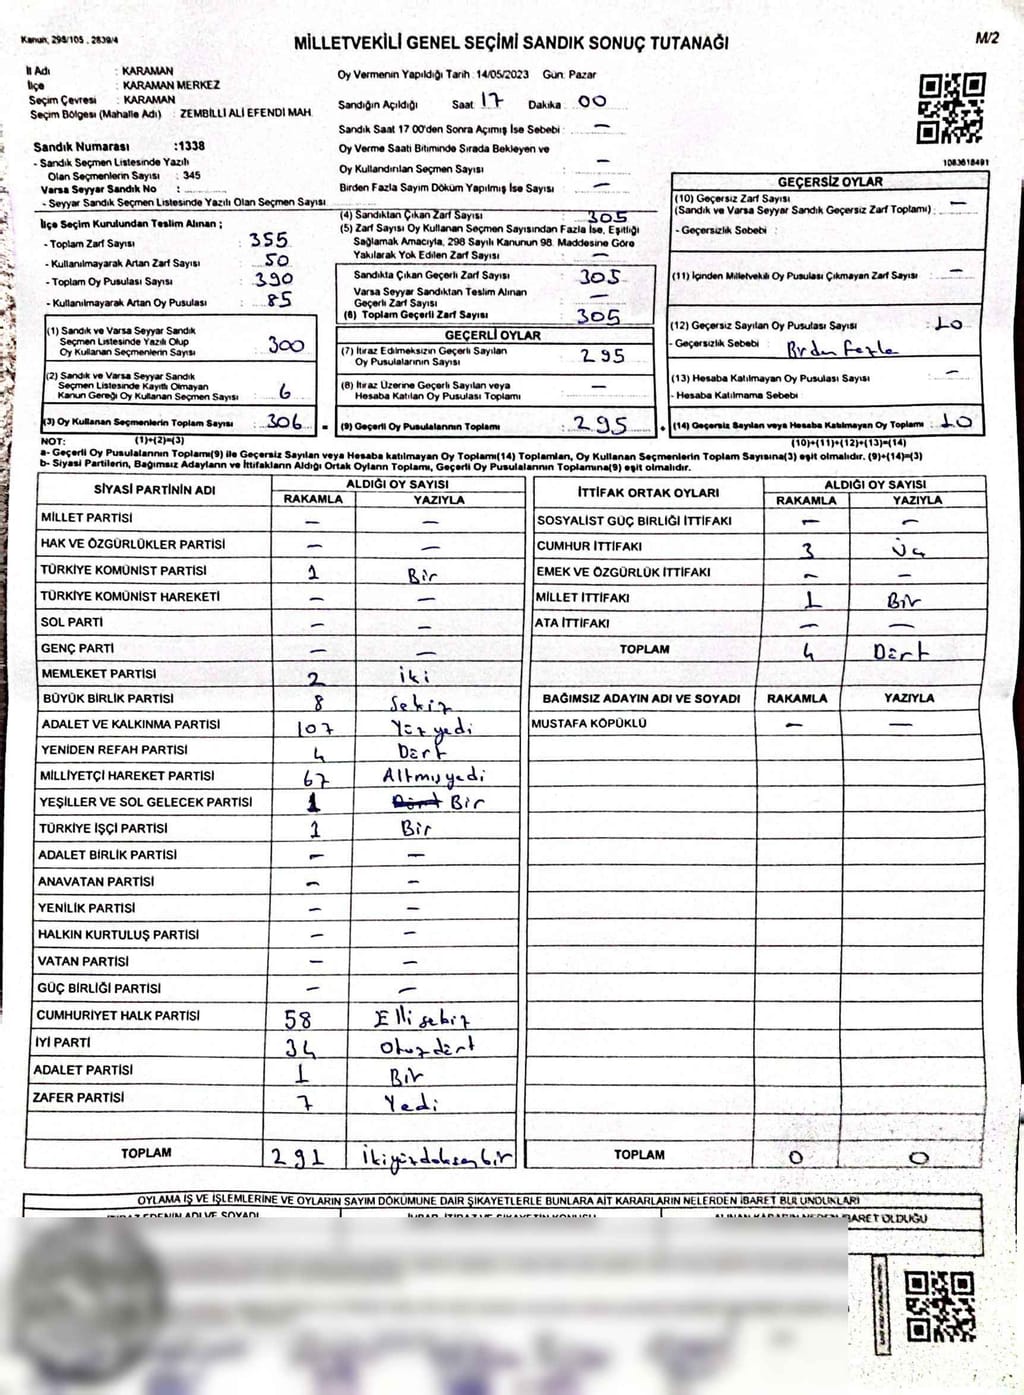 Kanun, 298/105 . 2839/4
MİLLETVEKİLİ GENEL SEÇİMİ SANDIK SONUÇ TUTANAĞI
M/2
İl Adı : KARAMAN
İlçe : KARAMAN MERKEZ
Seçim Çevresi : KARAMAN
Seçim Bölgesi (Mahalle Adı) : ZEMBİLLİ ALİ EFENDİ MAH.
Oy Vermenin Yapıldığı Tarih : 14/05/2023 Gün: Pazar
Sandığın Açıldığı Saat 17 Dakika : 00
Sandık Saat 17 00'den Sonra Açımış İse Sebebi : —
Oy Verme Saati Bitiminde Sırada Bekleyen ve
Oy Kullandırılan Seçmen Sayısı : —
Birden Fazla Sayım Döküm Yapılmış İse Sayısı : —
1083618491
Sandık Numarası :1338
- Sandık Seçmen Listesinde Yazılı
Olan Seçmenlerin Sayısı : 345
Varsa Seyyar Sandık No :
- Seyyar Sandık Seçmen Listesinde Yazılı Olan Seçmen Sayısı
İlçe Seçim Kurulundan Teslim Alınan ;
- Toplam Zarf Sayısı : 355
- Kullanılmayarak Artan Zarf Sayısı : 50
- Toplam Oy Pusulası Sayısı : 390
- Kullanılmayarak Artan Oy Pusulası : 85
(1) Sandık ve Varsa Seyyar Sandık
Seçmen Listesinde Yazılı Olup
Oy Kullanan Seçmenlerin Sayısı : 300
(2) Sandık ve Varsa Seyyar Sandık
Seçmen Listesinde Kayıtlı Olmayan
Kanun Gereği Oy Kullanan Seçmen Sayısı : 6
(3) Oy Kullanan Seçmenlerin Toplam Sayısı : 306
(4) Sandıktan Çıkan Zarf Sayısı : 305
(5) Zarf Sayısı Oy Kullanan Seçmen Sayısından Fazla İse, Eşitliği
Sağlamak Amacıyla, 298 Sayılı Kanunun 98. Maddesine Göre
Yakılarak Yok Edilen Zarf Sayısı : —
Sandıkta Çıkan Geçerli Zarf Sayısı : 305
Varsa Seyyar Sandıktan Teslim Alınan
Geçerli Zarf Sayısı : —
(6) Toplam Geçerli Zarf Sayısı : 305
GEÇERLİ OYLAR
(7) İtiraz Edilmeksizin Geçerli Sayılan
Oy Pusulalarının Sayısı : 295
(8) İtiraz Üzerine Geçerli Sayılan veya
Hesaba Katılan Oy Pusulası Toplamı : —
= (9) Geçerli Oy Pusulalarının Toplamı : 295
GEÇERSİZ OYLAR
(10) Geçersiz Zarf Sayısı
(Sandık ve Varsa Seyyar Sandık Geçersiz Zarf Toplamı) : —
- Geçersizlik Sebebi :
(11) İçinden Milletvekili Oy Pusulası Çıkmayan Zarf Sayısı : —
(12) Geçersiz Sayılan Oy Pusulası Sayısı : 10
- Geçersizlik Sebebi : Birden fazla
(13) Hesaba Katılmayan Oy Pusulası Sayısı : —
- Hesaba Katılmama Sebebi :
+ (14) Geçersiz Sayılan veya Hesaba Katılmayan Oy Toplamı : 10
NOT: (1)+(2)=(3)
(10)+(11)+(12)+(13)=(14)
a- Geçerli Oy Pusulalarının Toplamı(9) ile Geçersiz Sayılan veya Hesaba Katılmayan Oy Toplamı(14) Toplamları, Oy Kullanan Seçmenlerin Toplam Sayısına(3) eşit olmalıdır. (9)+(14)=(3)
b- Siyasi Partilerin, Bağımsız Adayların ve İttifakların Aldığı Ortak Oyların Toplamı, Geçerli Oy Pusulalarının Toplamına(9) eşit olmalıdır.
SİYASİ PARTİNİN ADI ALDIĞI OY SAYISI
RAKAMLA YAZIYLA
MİLLET PARTİSİ — —
HAK VE ÖZGÜRLÜKLER PARTİSİ — —
TÜRKİYE KOMÜNİST PARTİSİ 1 Bir
TÜRKİYE KOMÜNİST HAREKETİ — —
SOL PARTİ — —
GENÇ PARTİ — —
MEMLEKET PARTİSİ 2 iki
BÜYÜK BİRLİK PARTİSİ 8 Sekiz
ADALET VE KALKINMA PARTİSİ 107 Yüzyedi
YENİDEN REFAH PARTİSİ 4 Dört
MİLLİYETÇİ HAREKET PARTİSİ 67 Altmışyedi
YEŞİLLER VE SOL GELECEK PARTİSİ 1 Dört Bir
TÜRKİYE İŞÇİ PARTİSİ 1 Bir
ADALET BİRLİK PARTİSİ — —
ANAVATAN PARTİSİ — —
YENİLİK PARTİSİ — —
HALKIN KURTULUŞ PARTİSİ — —
VATAN PARTİSİ — —
GÜÇ BİRLİĞİ PARTİSİ — —
CUMHURİYET HALK PARTİSİ 58 Ellisekiz
İYİ PARTİ 34 Otuzdört
ADALET PARTİSİ 1 Bir
ZAFER PARTİSİ 7 Yedi
TOPLAM 291 İkiyüzdoksanbir
İTTİFAK ORTAK OYLARI ALDIĞI OY SAYISI
RAKAMLA YAZIYLA
SOSYALİST GÜÇ BİRLİĞİ İTTİFAKI — —
CUMHUR İTTİFAKI 3 Üç
EMEK VE ÖZGÜRLÜK İTTİFAKI — —
MİLLET İTTİFAKI 1 Bir
ATA İTTİFAKI — —
TOPLAM 4 Dört
BAĞIMSIZ ADAYIN ADI VE SOYADI RAKAMLA YAZIYLA
MUSTAFA KÖPÜKLÜ — —
TOPLAM 0 0
OYLAMA İŞ VE İŞLEMLERİNE VE OYLARIN SAYIM DÖKÜMÜNE DAİR ŞİKAYETLERLE BUNLARA AİT KARARLARIN NELERDEN İBARET BULUNDUKLARI